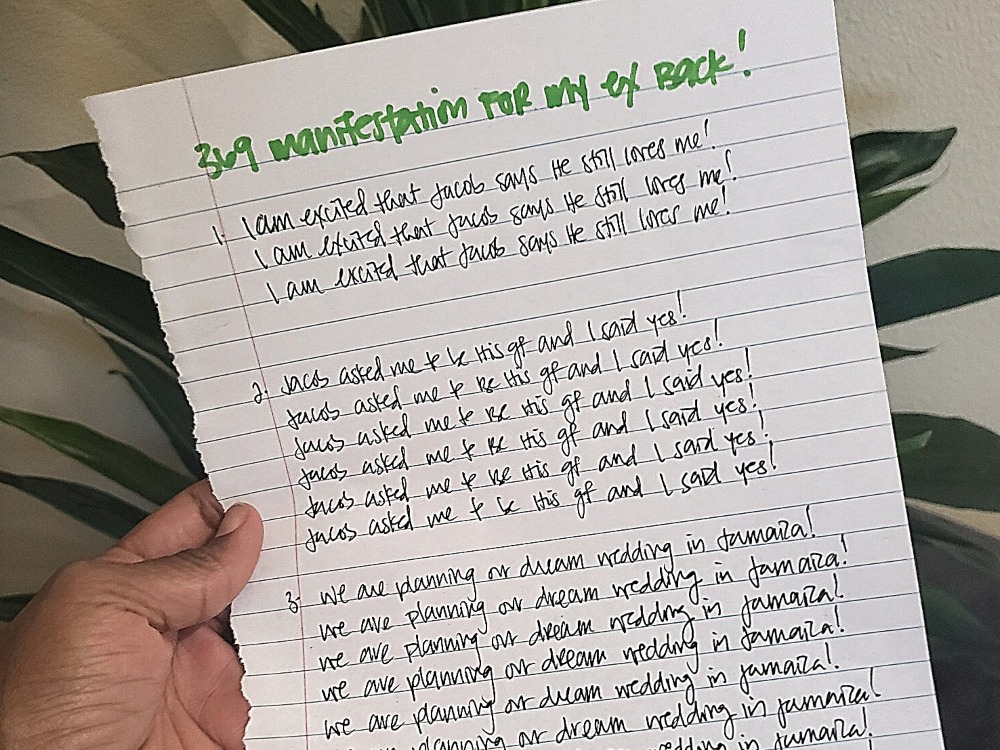 369 manifestation for my ex Back!
1. I am excited that Jacob says He still loves me!
I am excited that Jacob says He still loves me!
I am excited that Jacob says He still loves me!
2. Jacob asked me to be His gf and I said yes!
Jacob asked me to be His gf and I said yes!
Jacob asked me to be His gf and I said yes!
Jacob asked me to be His gf and I said yes!
Jacob asked me to be His gf and I said yes!
Jacob asked me to be His gf and I said yes!
3. We are planning our dream wedding in Jamaica!
We are planning our dream wedding in Jamaica!
We are planning our dream wedding in Jamaica!
We are planning our dream wedding in Jamaica!
We are planning our dream wedding in Jamaica!
planning our dream wedding in Jamaica!
wedding in Jamaica!